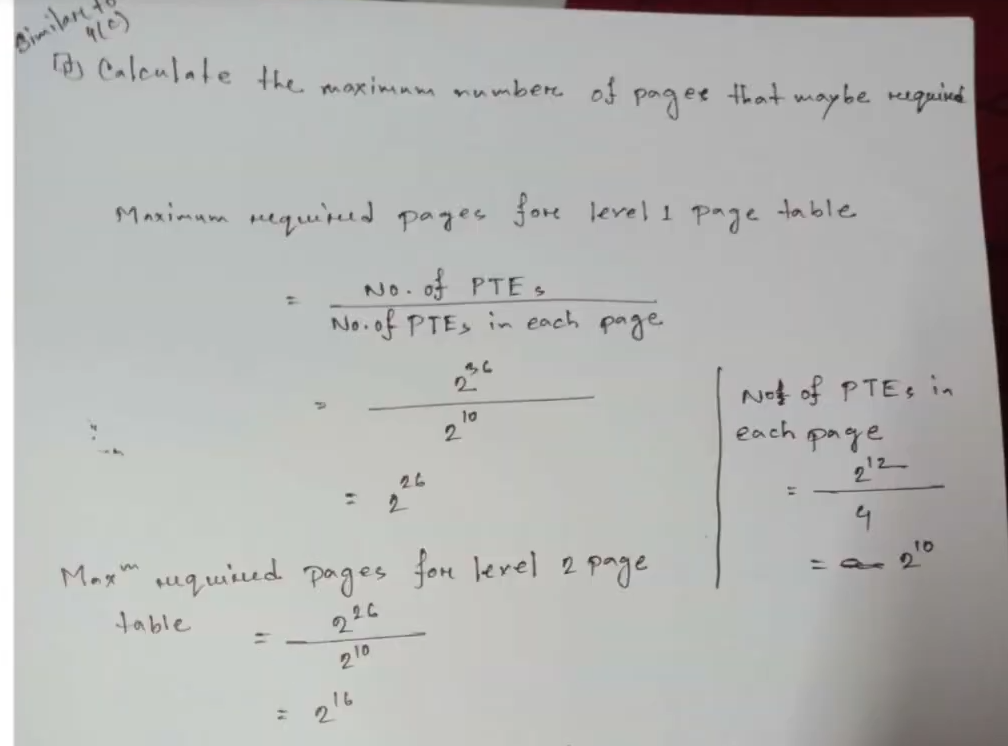 Similar to
4(c)
(d) Calculate the maximum number of pages that maybe required
Maximum required pages for level 1 page table
= No. of PTEs / No. of PTEs in each page
= 2^36 / 2^10
= 2^26
No of of PTEs in
each page
= 2^12 / 4
= 2^10
Max^m required pages for level 2 page
table = 2^26 / 2^10
= 2^16